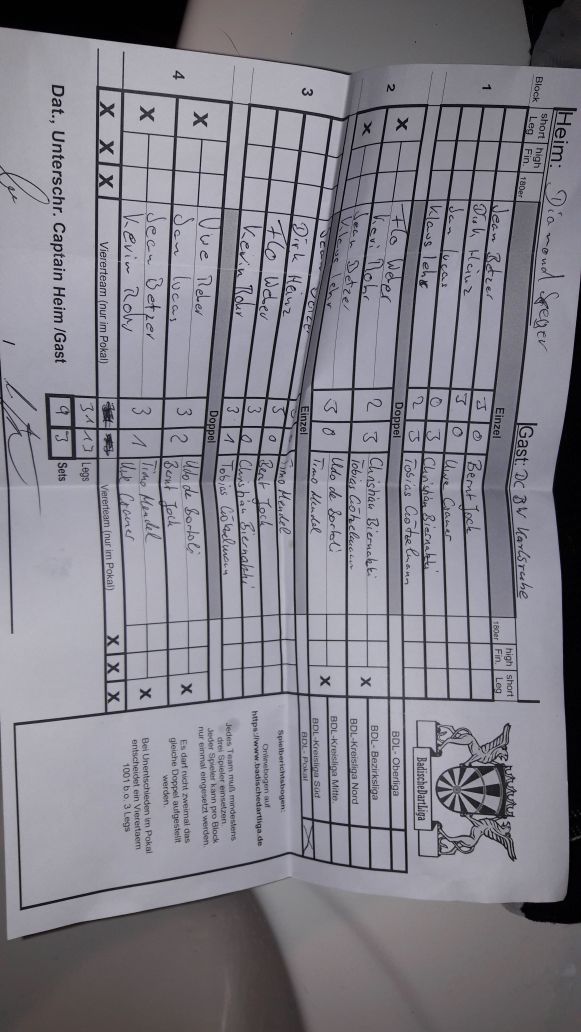 Heim: Diamond Gast: DC BW Karlsruhe
Block short Leg high Fin. 180er Einzel 180er high Fin. short Leg
1 Jean Betzer 3 0 Bernt Jock
Dirk Heinz 3 0 Uwe Cramer
Jan Lucas 0 3 Christian Biernatzki
Klaus Lehr 2 3 Tobias Götzelmann
Doppel
2 X Flo Weber 2 3 Christian Biernatzki X
Kevin Rohr Tobias Götzelmann
X Jean Betzer 3 0 Udo de Bortoli X
Klaus Lehr Timo Mendel
3 Einzel
Timo Mendel
Dirk Heinz 3 0 Bernt Jock
Flo Weber 3 0 Christian Biernatzki
Kevin Rohr 3 1 Tobias Götzelmann
Doppel
4 X Uwe 3 2 Udo de Bortoli X
Jan Lucas Bernt Jock
X Jean Betzer 3 1 Timo Mendel X
Kevin Rohr Uwe Cramer
X X X Viererteam (nur im Pokal) Viererteam (nur im Pokal) X X X
31 13 Legs
9 3 Sets
Dat., Unterschr. Captain Heim /Gast
BadischeDartLiga
BDL- Oberliga
BDL- Bezirksliga
BDL-Kreisliga Nord
BDL-Kreisliga Mitte
BDL-Kreisliga Süd
BDL- Pokal X
Spielberichtsbogen:
Onlinebogen auf
https://www.badischedartliga.de
Jedes Team muß mindestens
drei Spieler einsetzen.
Jeder Spieler kann pro Block
nur einmal eingesetzt werden.
Es darf nicht zweimal das
gleiche Doppel aufgestellt
werden.
Bei Unentschieden im Pokal
entscheidet ein Viererteam
1001 b.o. 3 Legs